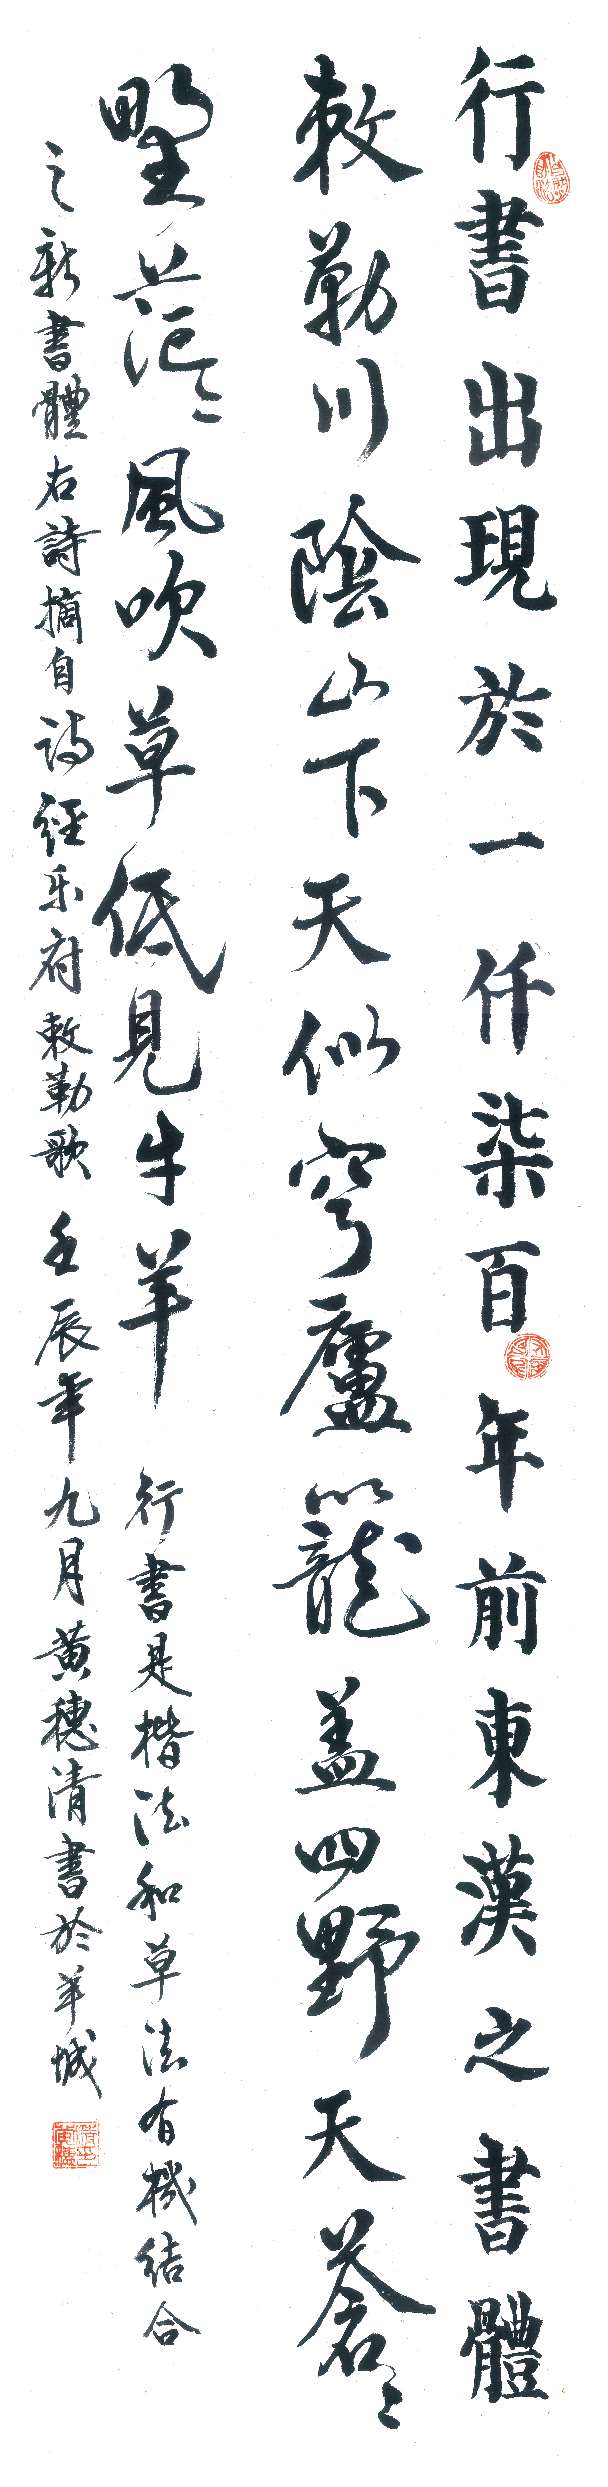 行書出現於一仟柒百年前東漢之書體
敕勒川陰山下天似穹廬籠蓋四野天蒼〻
野茫〻風吹草低見牛羊 行書是楷法和草法有機結合
之新書體右詩摘自詩經乐府敕勒歌 壬辰年九月黄穗清書於羊城